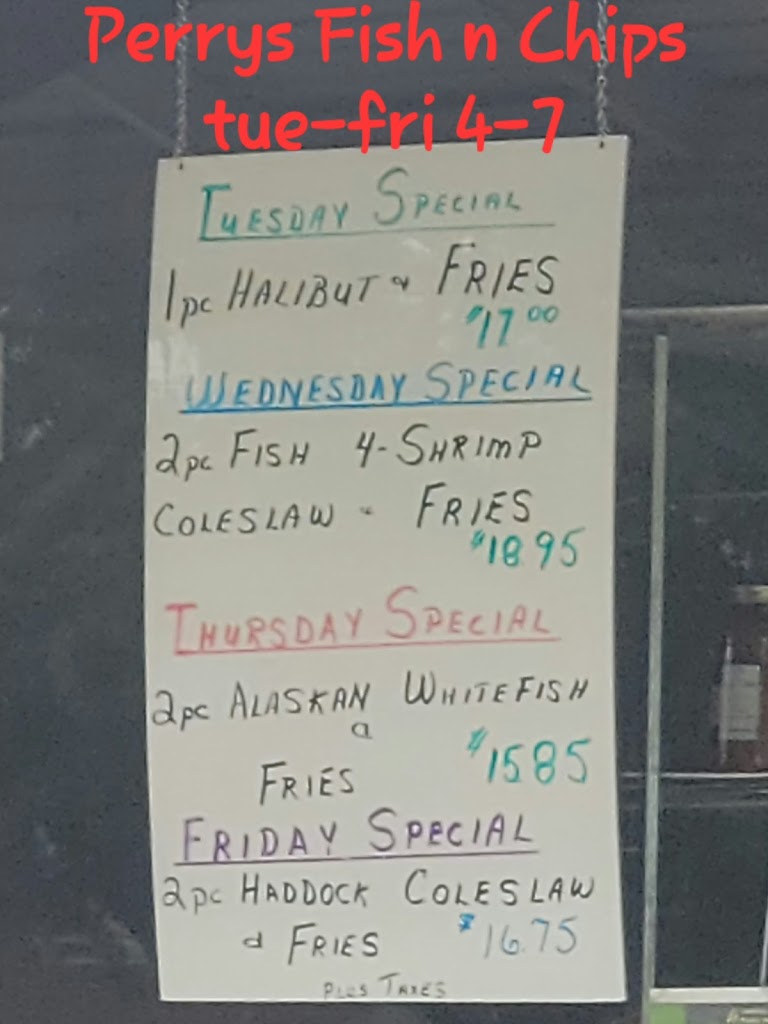 Perrys Fish n Chips
tue-fri 4-7
TUESDAY SPECIAL
1pc HALIBUT & FRIES
$17.00
WEDNESDAY SPECIAL
2pc FISH 4-SHRIMP
COLESLAW & FRIES
$18.95
THURSDAY SPECIAL
2pc ALASKAN WHITEFISH
&
FRIES $15.85
FRIDAY SPECIAL
2pc HADDOCK COLESLAW
& FRIES $16.75
PLUS TAXES